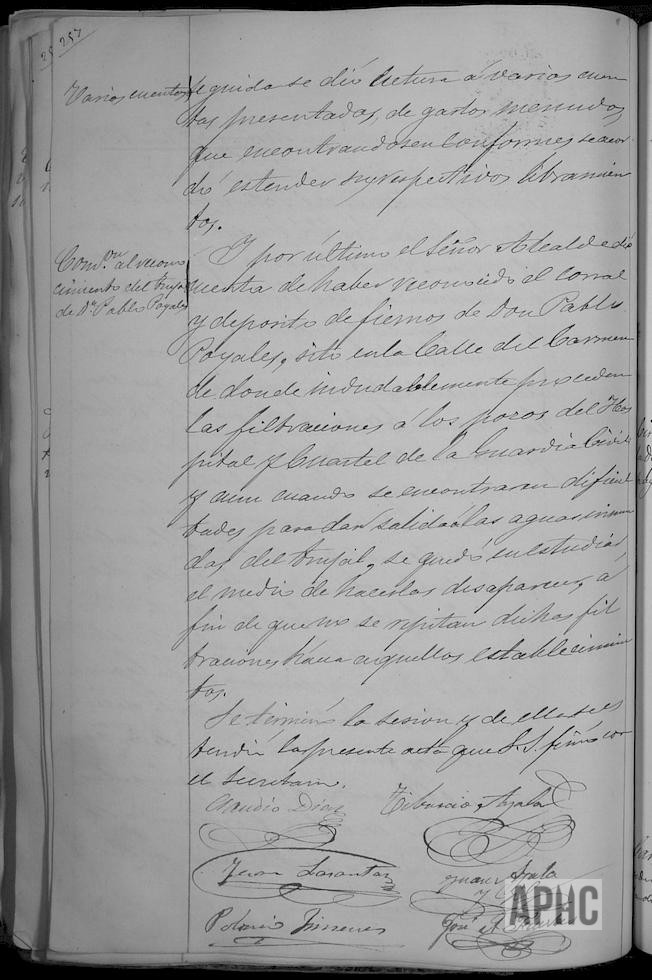 257
Varias cuentas
seguida se dió lectura á varias cuen
tas presentadas, de gastos menudos
que encontrandose en conformes se acor
dó estender sus respectivos libramien
tos.
Com.on al recono
cimiento del trujal
de Dn Pablo Poyales
Y por último el Señor Alcalde dió
cuenta de haber reconocido el corral
y deposito de fiemos de Don Pablo
Poyales, sito en la Calle del Carmen
de donde indudablemente proceden
las filtraciones á los pozos del Hos
pital y Cuartel de la Guardia Civil
y aun cuando se encontraran dificul
tades para dar salida á las aguas inmun
das del trujal, se quedó en estudiar
el medio de hacerlas desaparecer, á
fin de que no se repitan dichas fil
traciones hácia aquellos establecimien
tos.
Se terminó la sesion y de ella se es
tendió la presente acta que S.S. firmó con
el Secretario.
Claudio Diaz
Tiburcio Ayala
Juan Lasantas
Juan Ayala
Polonio Jimenez
José
APHC